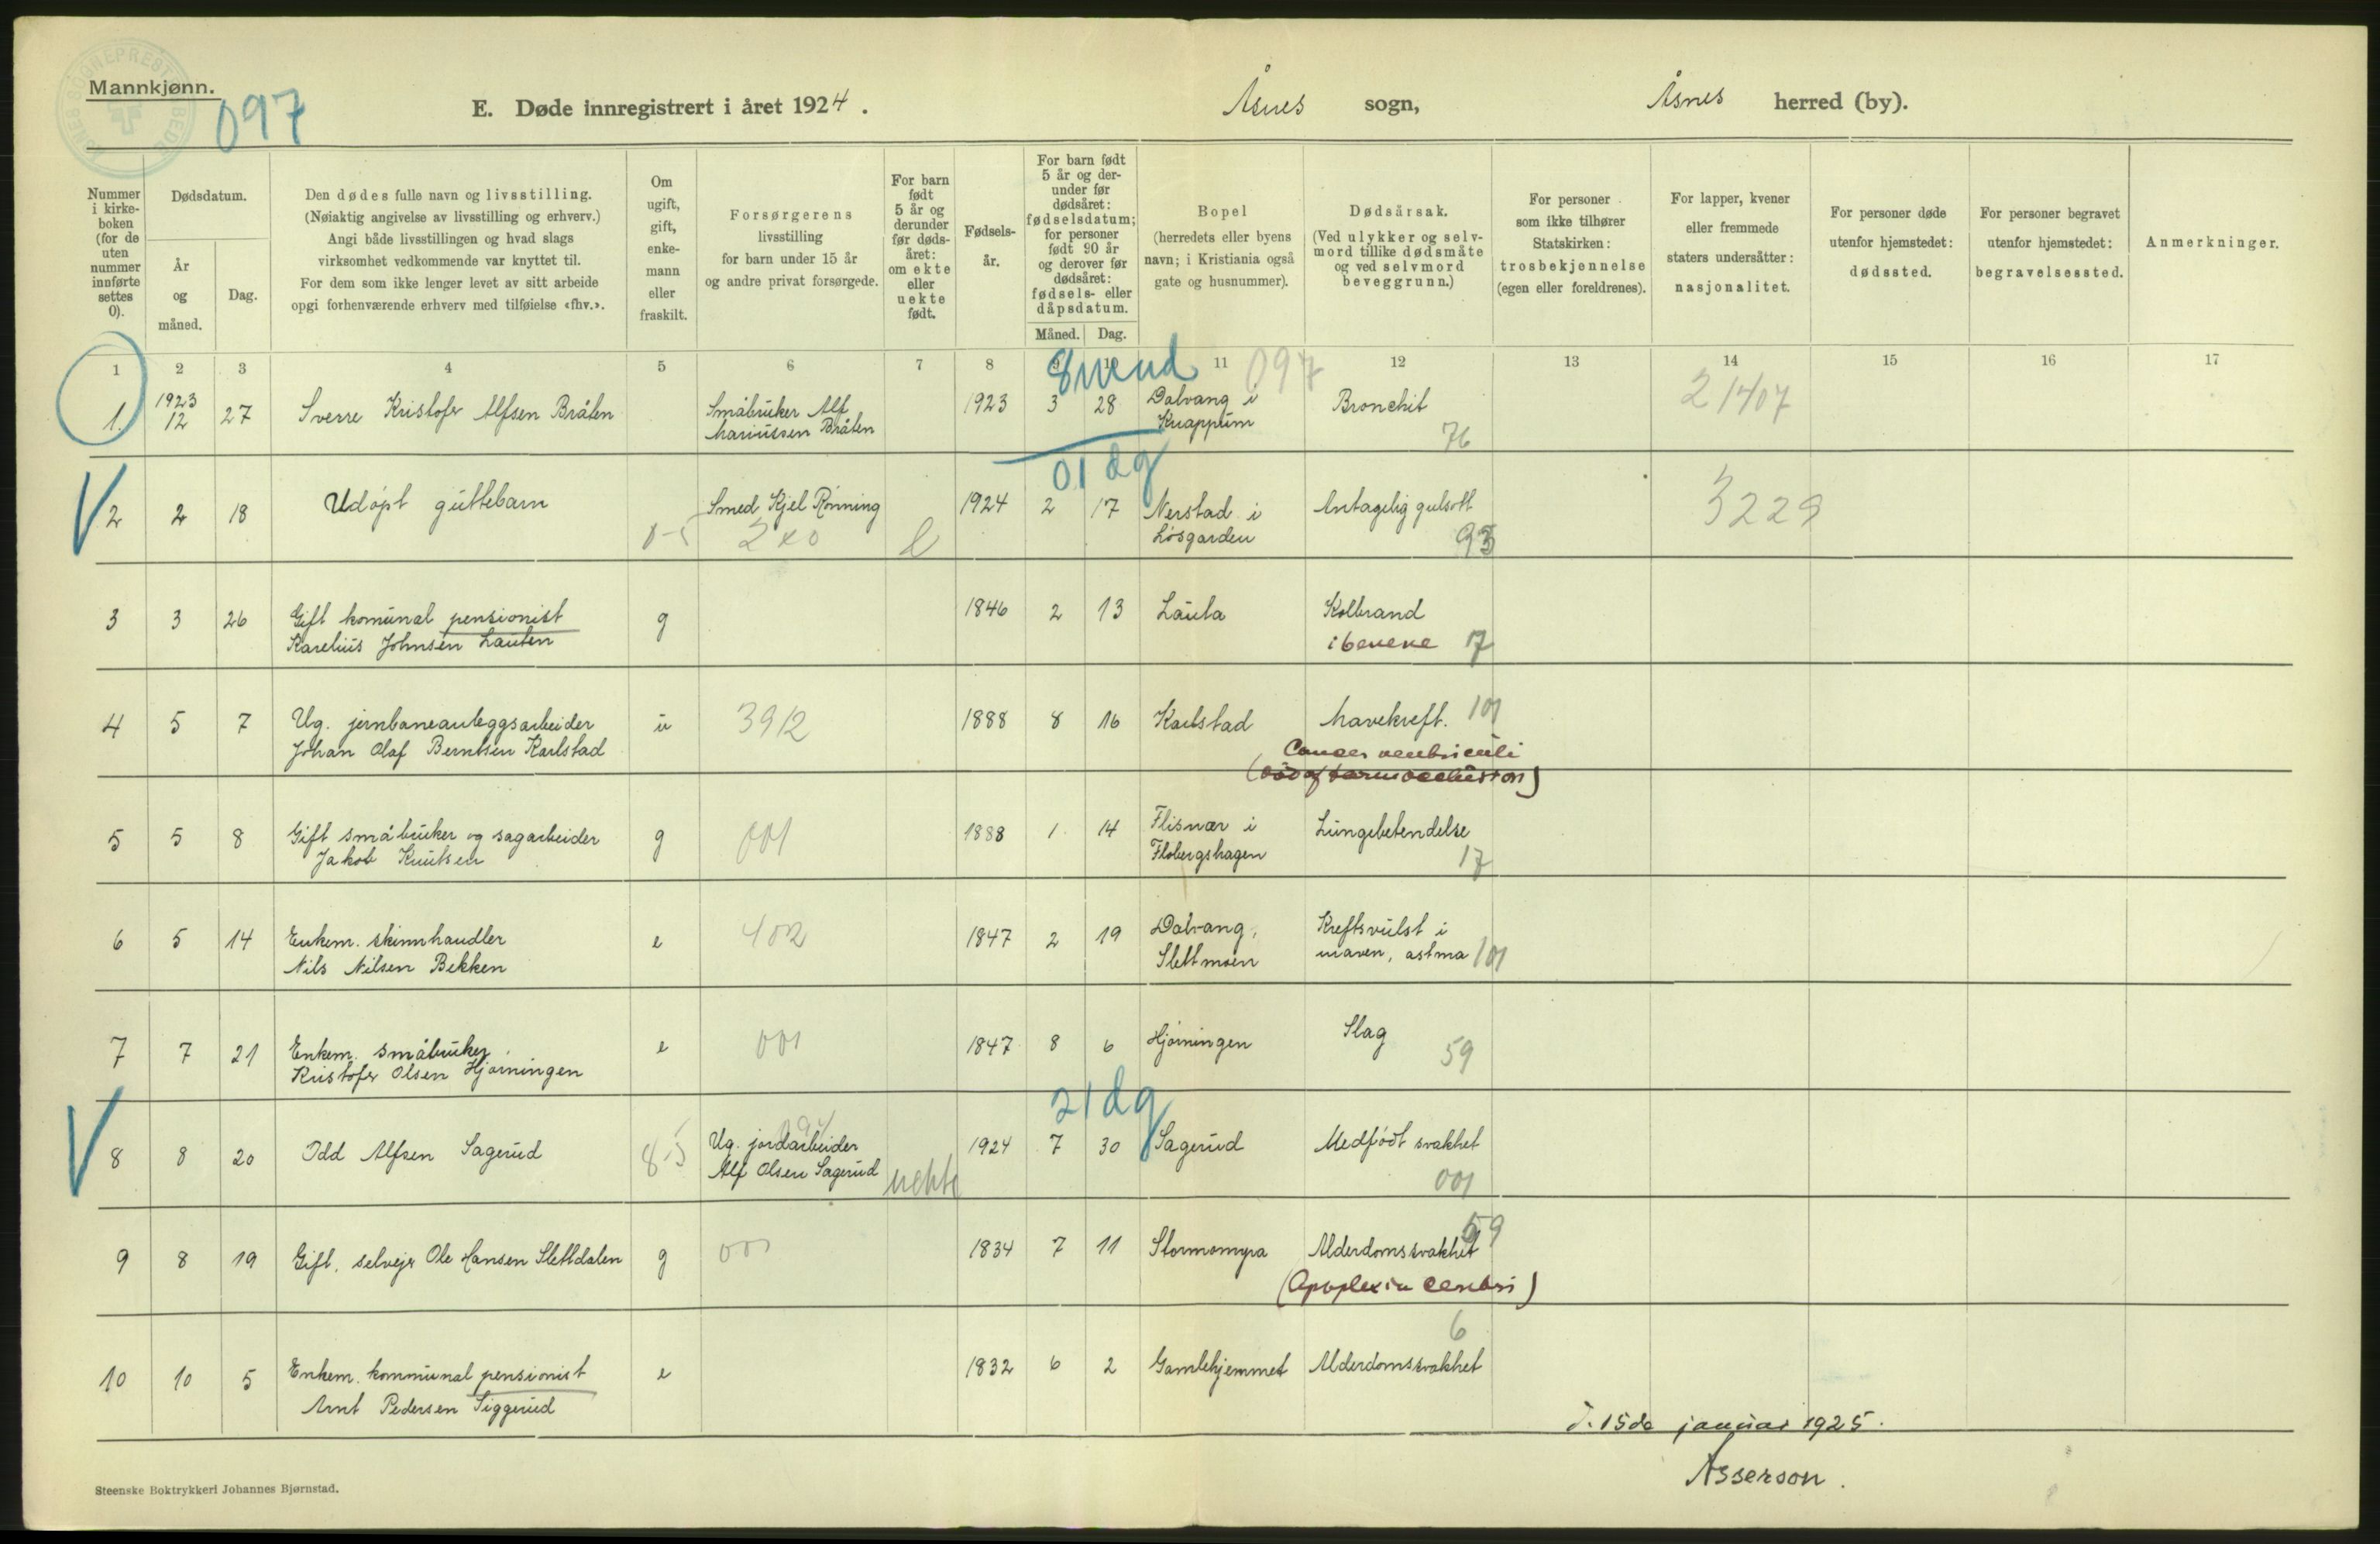 Mannkjønn.
097
E. Døde innregistrert i året 1924.
Åsnes sogn,
Åsnes herred (by).
Nummer i kirke- boken (for de uten nummer innførte settes 0).
Dødsdatum.
År og måned.
Dag.
Den dødes fulle navn og livsstilling.
(Nøiaktig angivelse av livsstilling og erhverv.)
Angi både livsstillingen og hvad slags
virksomhet vedkommende var knyttet til.
For dem som ikke lenger levet av sitt arbeide
opgi forhenværende erhverv med tilføielse «fhv.».
Om ugift, gift, enke- mann eller fraskilt.
Forsørgerens
livsstilling
for barn under 15 år
og andre privat forsørgede.
For barn født 5 år og derunder før døds- året: om ekte eller uekte født.
Fødsels- år.
For barn født 5 år og der- under før dødsåret: fødselsdatum; for personer født 90 år og derover før dødsåret: fødsels- eller dåpsdatum.
Måned. Dag.
Bopel
(herredets eller byens
navn; i Kristiania også
gate og husnummer).
Dødsårsak.
(Ved ulykker og selv-
mord tillike dødsmåte
og ved selvmord
beveggrunn.)
For personer
som ikke tilhører
Statskirken:
trosbekjennelse
(egen eller foreldrenes).
For lapper, kvener
eller fremmede
staters undersåtter:
nasjonalitet.
For personer døde
utenfor hjemstedet:
dødssted.
For personer begravet
utenfor hjemstedet:
begravelsessted.
Anmerkninger.
1 2 3 4 5 6 7 8 9 10 11 12 13 14 15 16 17
8 mnd 097
1. 1923 12 27 Sverre Kristofer Alfsen Bråten Småbruker Alf 1923 3 28 Dalvang i Bronchit 21407
Mariussen Bråten Knappum 76
01 dg
2 2 18 Udøpt guttebarn Smed Kjel Rønning 1924 2 17 Nerstad i Antagelig gulsott 3229
0-5 240 e Løsgarden 93
3 3 26 Gift komunal pensionist g 1846 2 13 Lauta Kolbrand
Karelius Johnsen Lauten i benene 17
4 5 7 Ug. jernbaneanleggsarbeider u 3912 1888 8 16 Karlstad Mavekreft. 101
Johan Olaf Berntsen Karlstad
Cancer ventriculi
5 5 8 Gift småbruker og sagarbeider g 001 1888 1 14 Flisnær i Lungebetendelse
Jakob Knutsen Flobergshagen 17
6 5 14 Enkem. skinnhandler e 402 1847 2 19 Dalvang, Kreftsvulst i
Nils Nilsen Bekken Slettmoen maven, astma 101
7 7 21 Enkem. småbruker e 001 1847 8 6 Hjørningen Slag
Kristofer Olsen Hjørningen 59
21 dg
8 8 20 Odd Alfsen Sagerud 8-5 Ug. jordarbeider 1924 7 30 Sagerud Medfødt svakhet
Alf Olsen Sagerud uekte 001
59
9 8 19 Gift, selvejer Ole Hansen Slettdalen g 001 1834 7 11 Stormomyra Alderdomssvakhet
(Apoplexia cerebri)
6
10 10 5 Enkem. kommunal pensionist e 1832 6 2 Gamlehjemmet Alderdomssvakhet
Arnt Pedersen Siggerud
d. 15de januar 1925.
Asserson.
Steenske Boktrykkeri Johannes Bjørnstad.